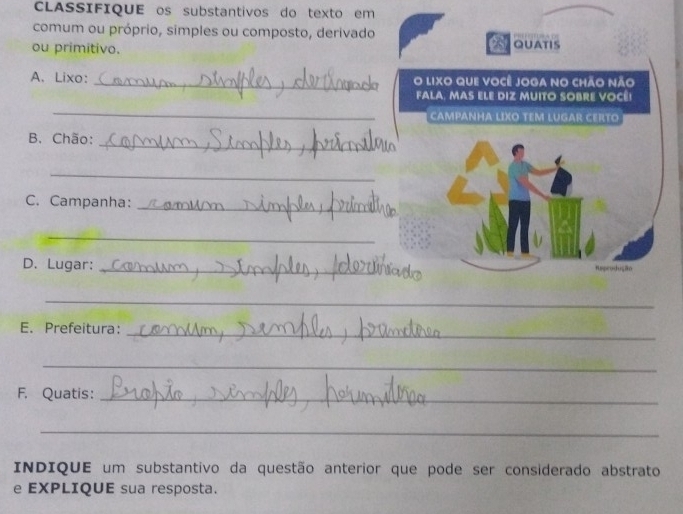 CLASSIFIQUE os substantivos do texto em
comum ou próprio, simples ou composto, derivado
ou primitivo.
QUATIS
O LIXO QUE VOCÊ JOGA NO CHÃO NÃO
FALA, MAS ELE DIZ MUITO SOBRE VOCÊ!
CAMPANHA LIXO TEM LUGAR CERTO
Reprodução
A. Lixo: comum, simples,
B. Chão: comum, simples,
C. Campanha: comum simples,
D. Lugar: comum, simples,
E. Prefeitura: comum,
F. Quatis: simples,
INDIQUE um substantivo da questão anterior que pode ser considerado abstrato
e EXPLIQUE sua resposta.